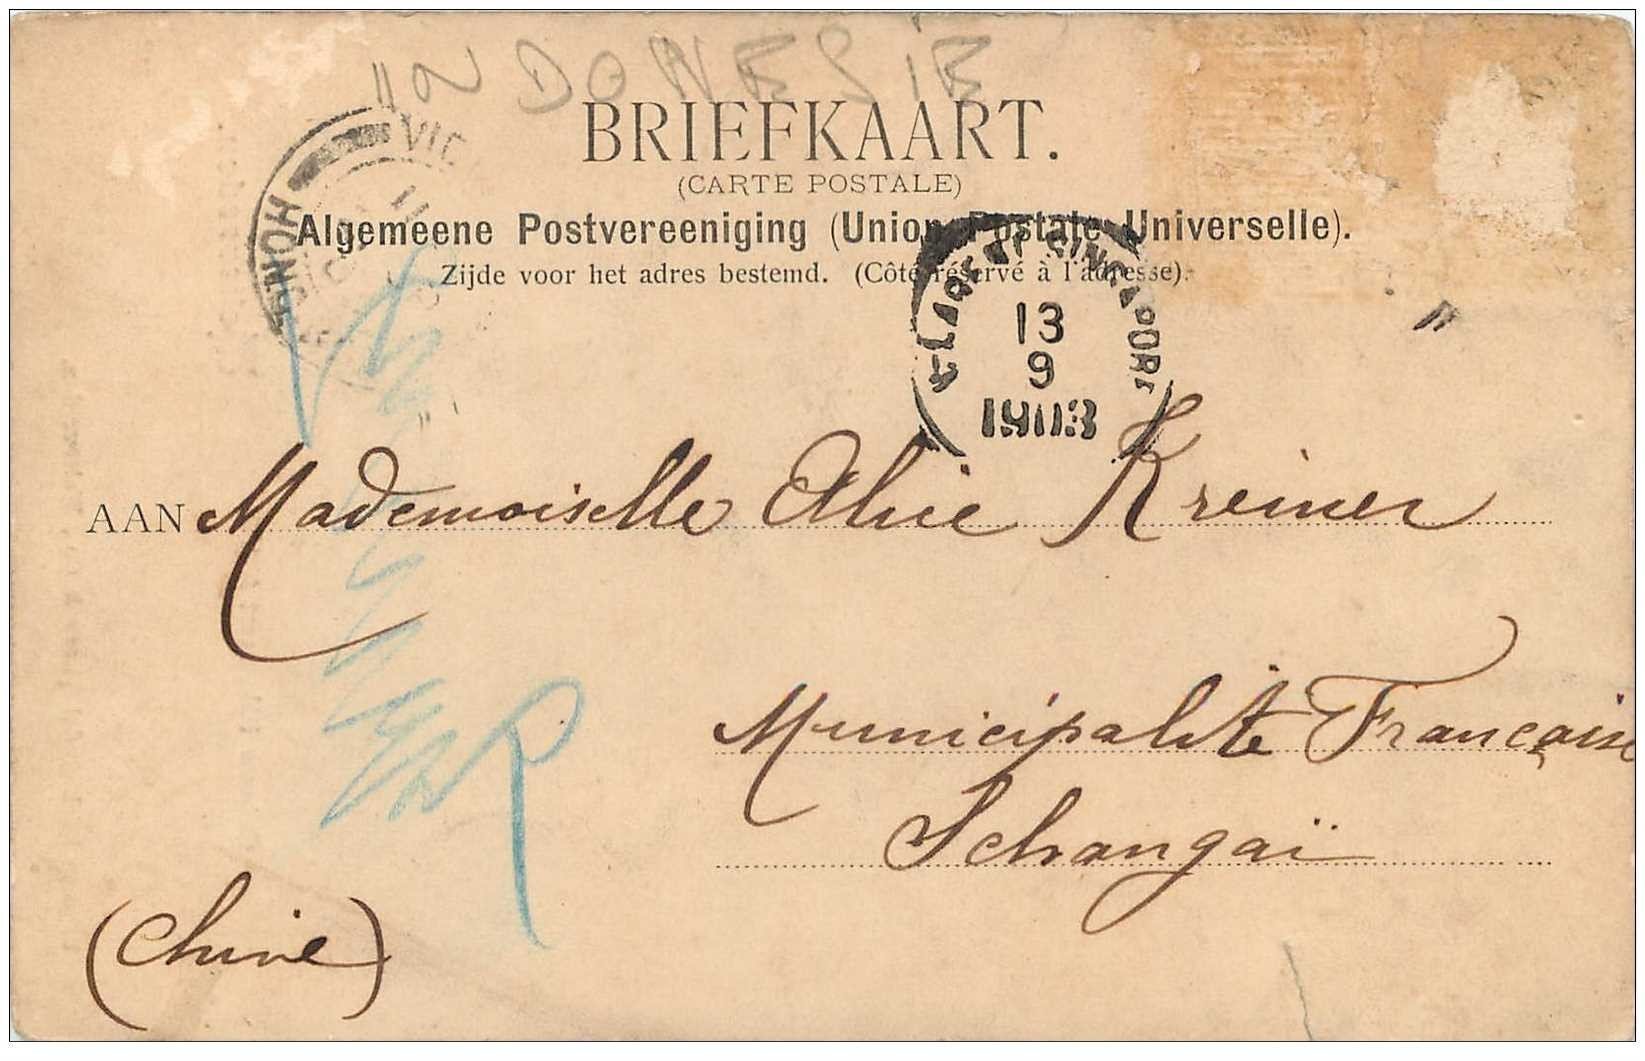 INDONESIE
BRIEFKAART.
(CARTE POSTALE)
Algemeene Postvereeniging (Union Postale Universelle).
Zijde voor het adres bestemd. (Côté réservé à l'adresse).
VIC
HONG
11
SINGAPORE
13
9
1903
AAN Mademoiselle Alice Kreiner
Municipalité Française
Schangaï
(Chine)
R